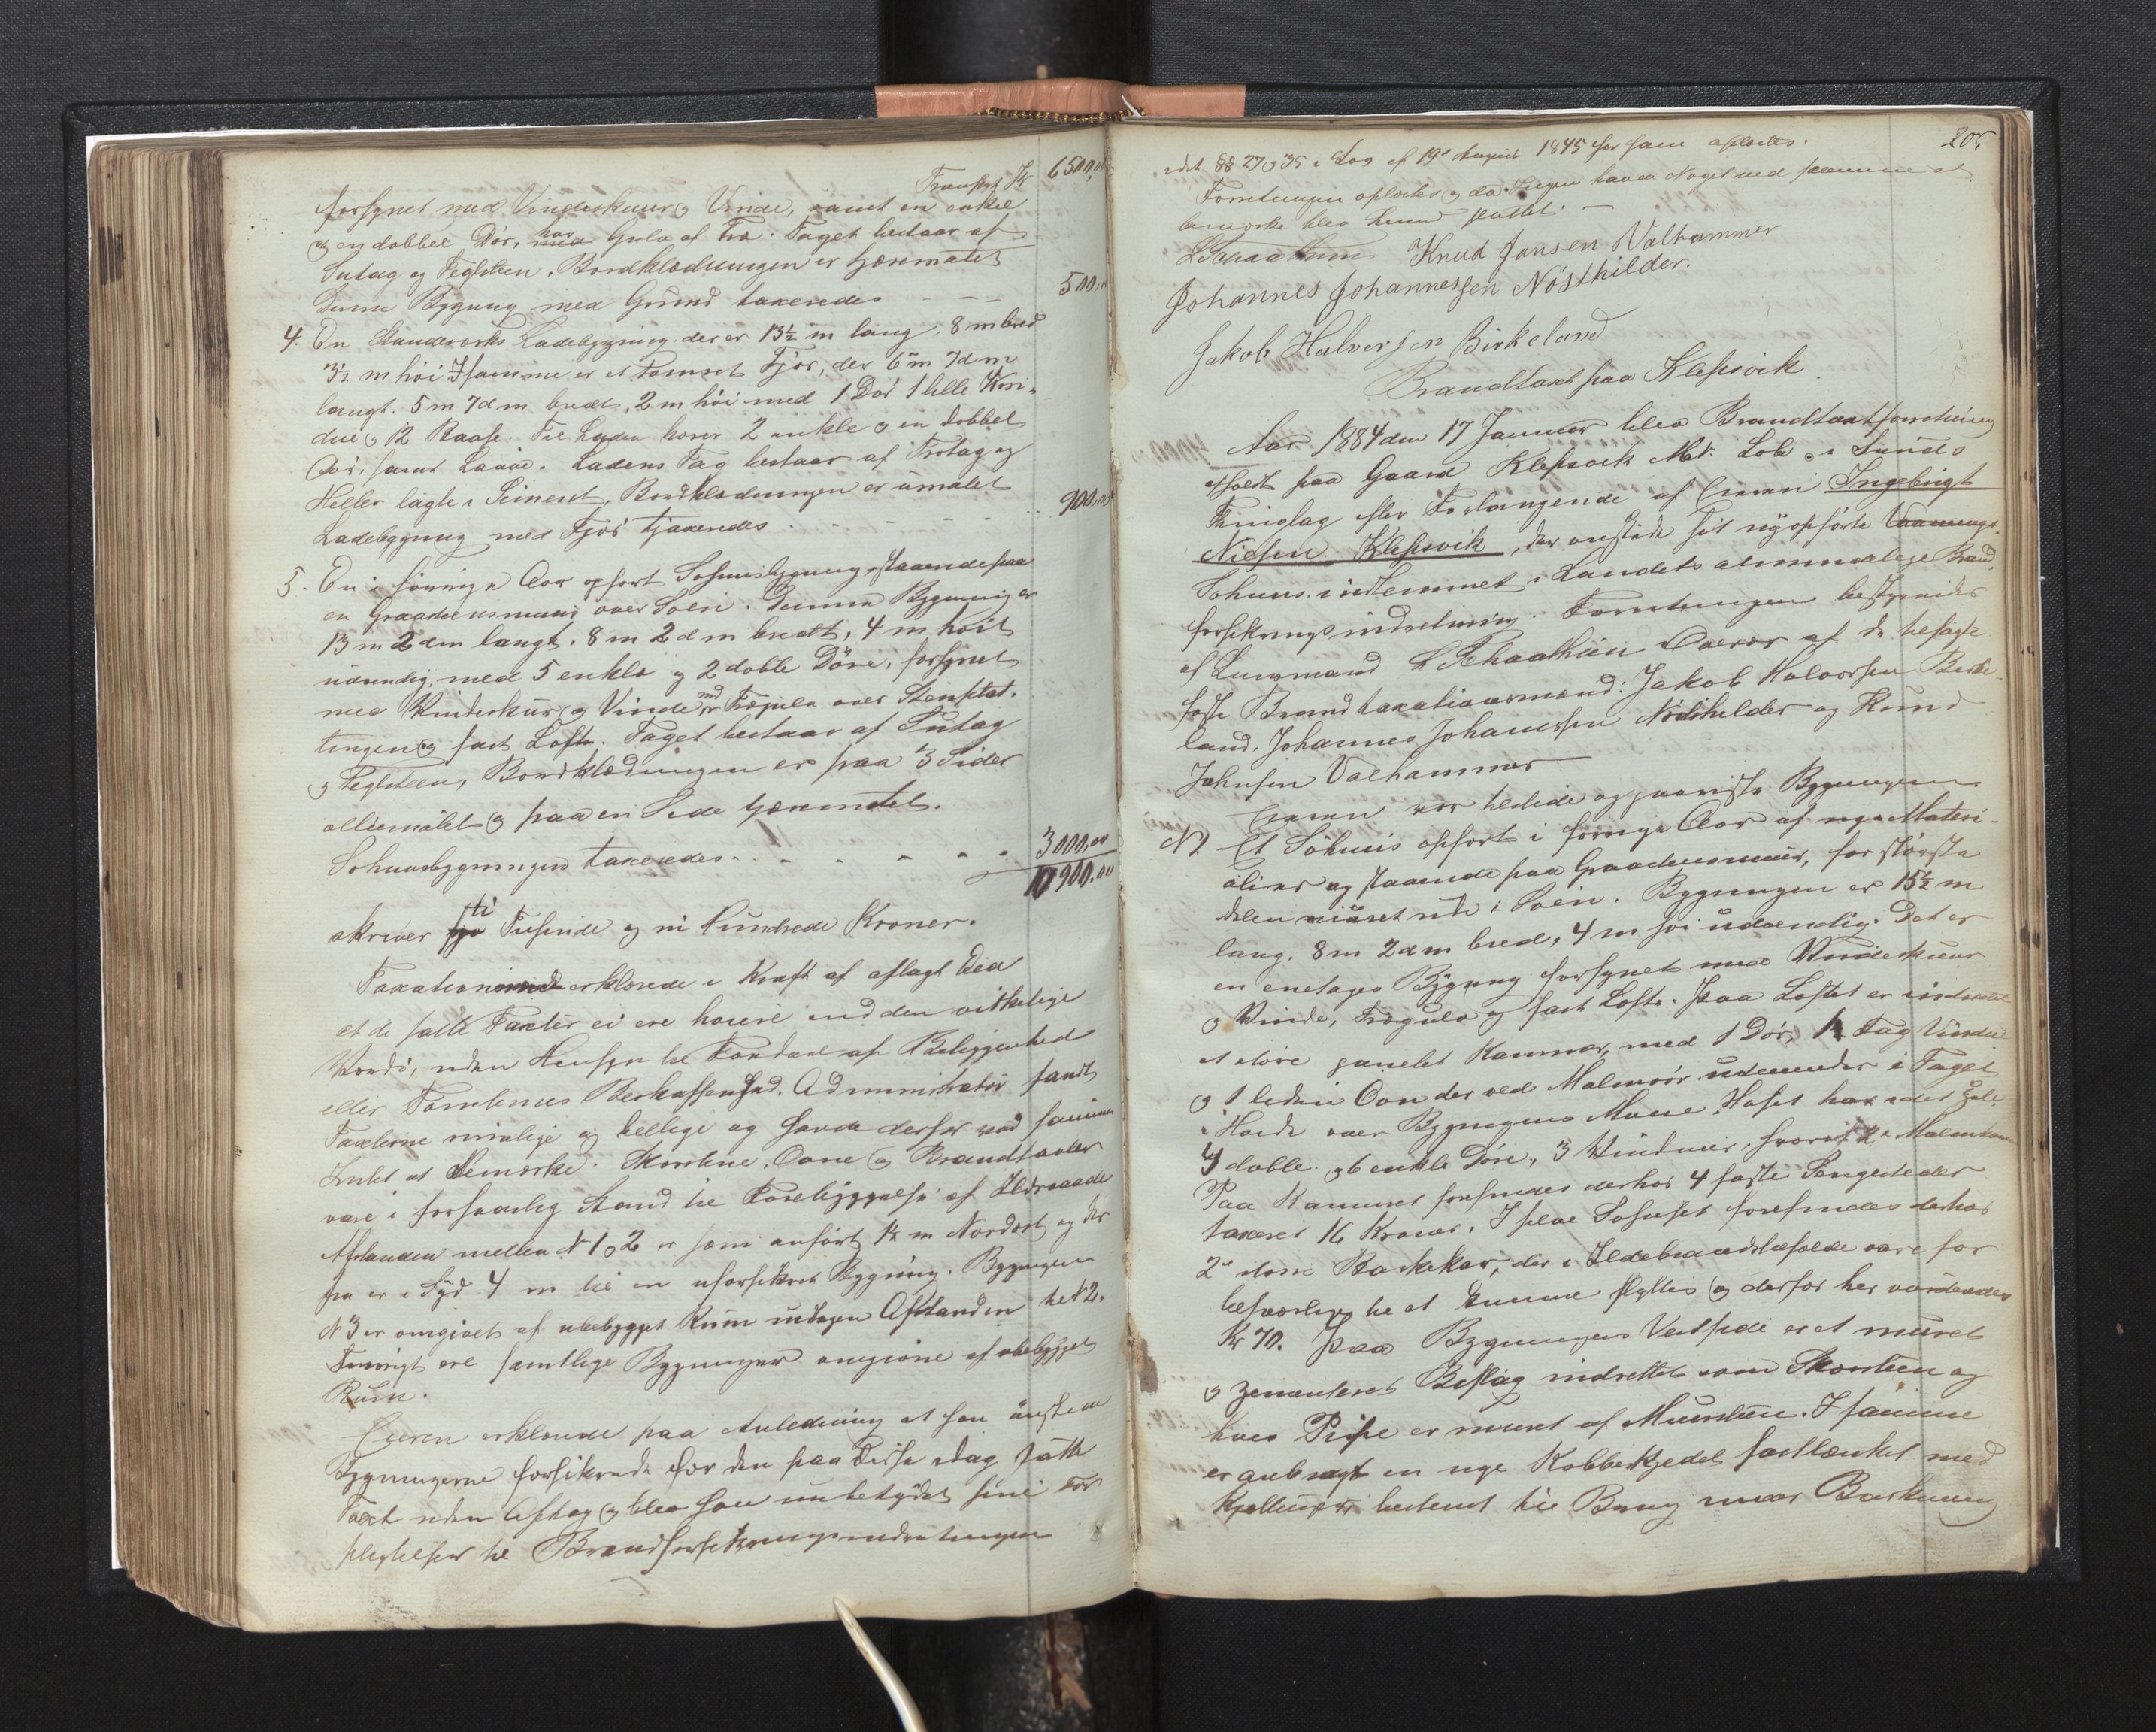 Transport Kr 6500,00
forsynet med Vinderskuur og Vinde, samt en enkel
og en dobbel Dør, har Gulv af Træ. Taget bestaar af
Sutag og Teglsteen. Bordklædningen er tjæremalet
Denne Bygning med Grund taxeredes - - - 500,00
4. En Standværks Ladebygning der er 13½ m lang, 8 m bred
3½ m høi. I samme er et tømret Fjøs, der 6 m 7 dm
langt. 5 m 7 dm bredt, 2 m høi med 1 Dør 1 lille Vin-
due og 12 Baase. Til Laden hører 2 enkle og en dobbel
Dør, samt Laave. Ladens Tag bestaar af Trotag og
Heller lagte i Steineret, Bordklædningen er umalet
Ladebygning med Fjøs taxeredes - - - - 900,00
5. En i forrige Aar opført Søhuusbygning staaende paa
en Graasteensmuur over Søen. Denne Bygning er
13 m 2 dm langt, 8 m 2 dm bredt, 4 m høit
udvendig, med 5 enkle og 2 doble Døre, forsynet
med Vinderskur og Vinde med Trægulv over Stenfæt-
tingen og fast Loft. Taget bestaar af Sutag
og Teglsteen, Bordklædningen er paa 3 Sider
olliemalet og paa en Side tjæremalet.
Søhuusbygningen taxeredes - - - - 3000,00
10900,00
skriver ti Tusinde og ni Hundrede Kroner.
Taxationsmænd erklærede i Kraft af aflagt Eed
at de satte Taxter ei ere høiere end den virkelige
Værdi, uden Hensyn til Fordeel af Beliggenhed
eller Tomternes Beskaffenhed. Administrator fandt
Taxterne rimelige og billige og havde derfor ved samme
Intet at Bemærke. Skorstene, Ovne og Brandtavler
vare i forsvarlig Stand til Forebyggelse af Ildsvaade
Afstanden mellem N 1 og 2 er som anført 14 m Nordost og der
fra er i Syd 4 m til en uforsikret Bygning. Bygningen
N 3 er omgivet af ubebygget Rum undtagen Afstanden til N 2.
Forøvrigt ere samtlige Bygninger omgivne af ubebygget
Rum.
Eieren erklærede paa Anledning at han ønskede
Bygningerne forsikrede for den paa disse idag satte
Taxt uden Aftag og blev han underrettet sine For
pligtelser til Brandforsikringsindretningen
205
idet §§ 27 og 35 i Lov af 19de August 1845 for ham oplæstes.
Forretningen oplæstes og da Ingen havde Noget ved samme at
bemærke blev hermed sluttet. —
L Schaathun Knud Jansen Valhammer
Johannes Johannessen Nøsthilder.
Jakob Halversen Birkeland
Brandtaxt paa Klepsvik.
Aar 1884 den 17 Januar blev Brandtaxtforretning
afholdt paa Gaard Klepsvik Mat. Lobe i Sunds
Thinglag efter Forlangende af Eieren Ingebrigt
Nielsen Klepsvik, der ønskede sit nyopførte Vaanings
Søhuus indlemmet i Landets almindelige Brand-
forsikringsindretning. Forretningen bestyredes
af Lensmand L Schaathun Overvær af de befalte
faste Brandtaxationsmænd: Jakob Halvorsen Birke-
land, Johannes Johannesen Nøsthilder og Knud
Johnsen Valhammer
Eieren var tilstede og paaviste Bygningen
N 1. Et Søhuus opført i forrige Aar af nye Materi-
alier og staaende paa Graasteensmuur, for største
delen muuret ude i Søen. Bygningen er 15½ m
lang, 8 m 2 dm bred, 4 m høi udvendig. Det er
en enetages Bygning forsynet med Vinderskuur
og Vinde, Trægulv og fast Loft. Paa Loftet er indredet
et større panelet Kammer, med 1 Dør, 1 Tag Vindu
og 1 liden Ovn der ved Malmrør udmunder i Taget
i Høide over Bygningens Møne. Huset har i det Hele
4 doble og 6 enkle Døre, 3 Vinduer, hvoraf 2
Paa Kammeret forefindes derhos 4 faste Sengesteder
taxeret 16 Kroner. I selve Søhuset forefindes derhos
2de store Barkekar, der i Ildebrandstilfælde vare for
besværlige til at kunne flyttes og derfor her vurderedes
Kr 70. Paa Bygningens Vestside er et muret
og zementeret Beslag indrettet som Skorsteen og
hvis Pipe er muret af Muursteen. I samme
er anbragt en nye Kobberkjedel fastlænket med
bestemt til Brug under Barkning